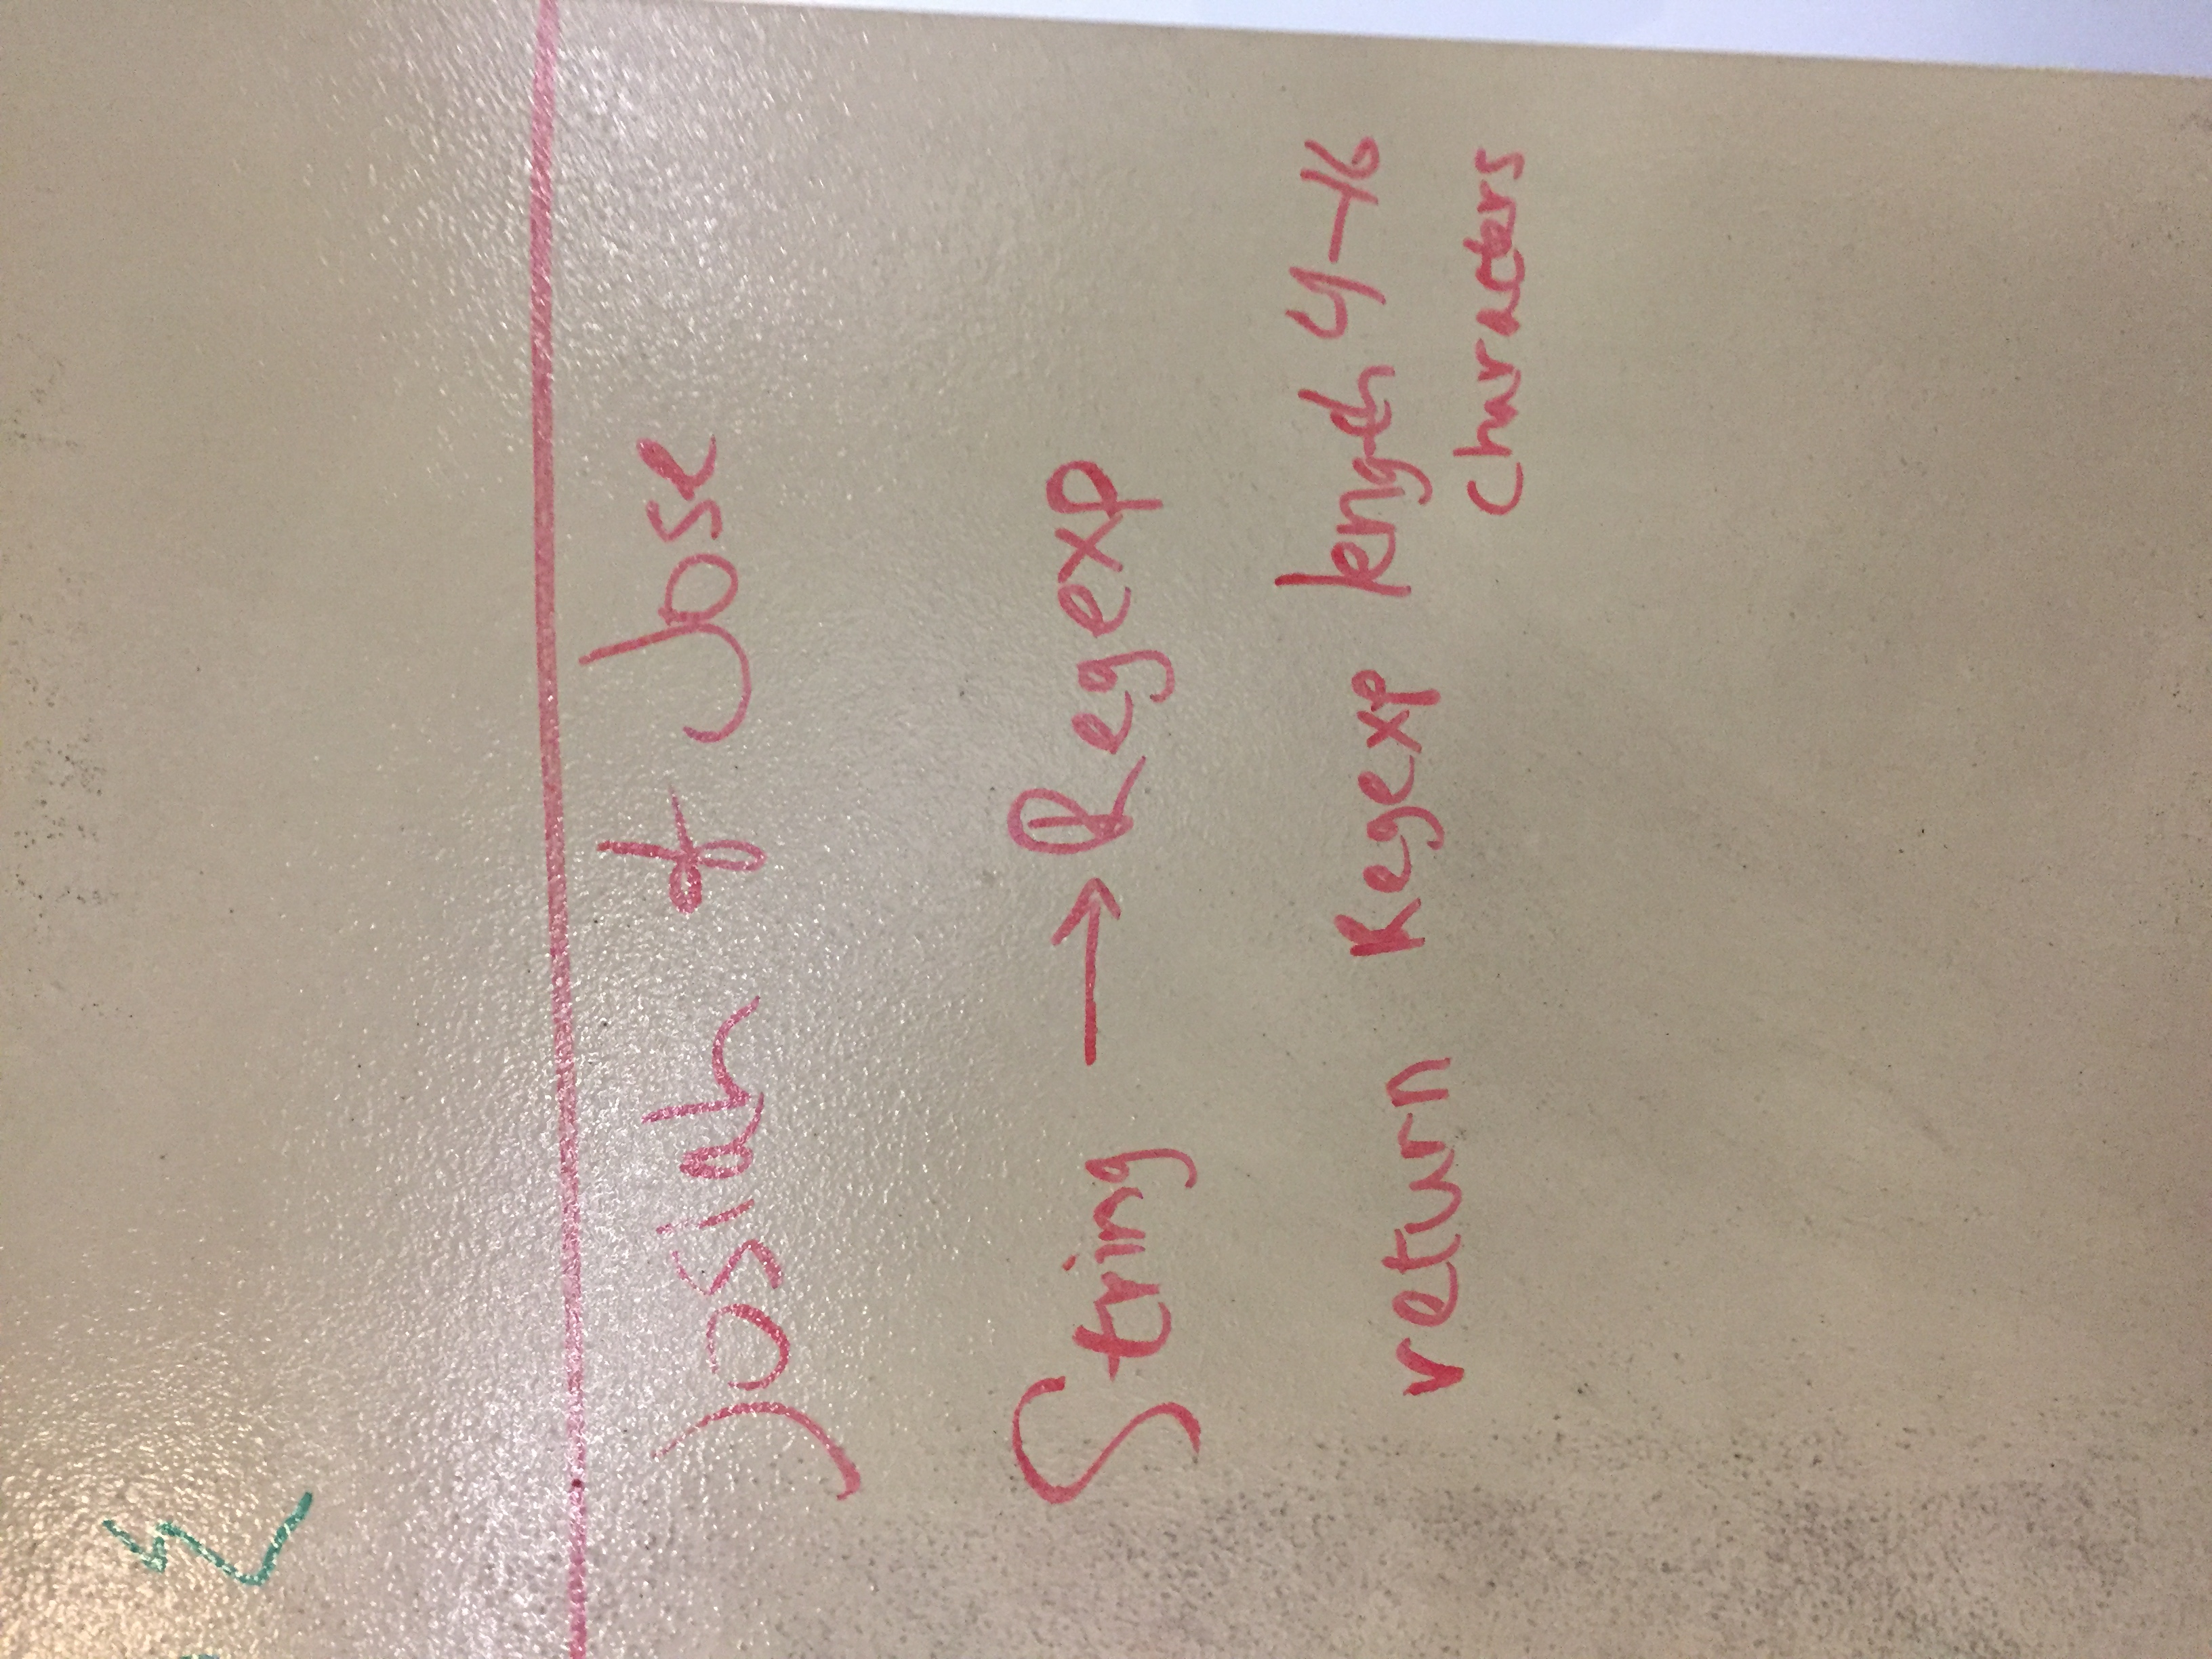 Josiah & Jose
String → Regexp
return Regexp length 4-16
characters